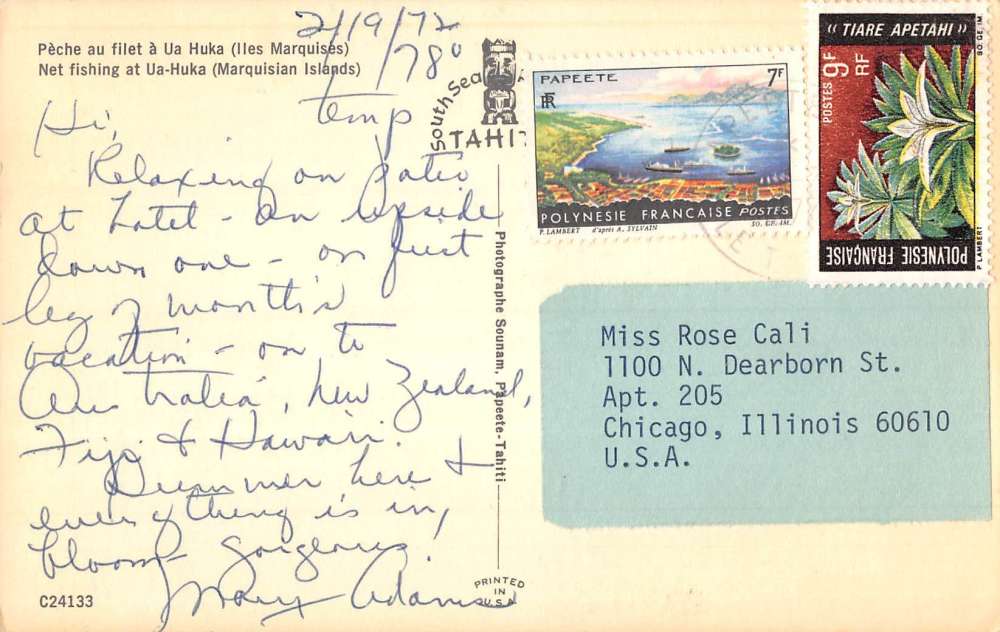 2/19/72
Pèche au filet à Ua Huka (Iles Marquises)
Net fishing at Ua-Huka (Marquisian Islands)
78°
temp
Hi,
Relaxing on patio
at hotel - an upside
down one - on first
leg of month's
vacation - on to
Australia, New Zealand,
Fiji & Hawaii.
Summer here &
everything is in
bloom - gorgeous!
Mary Adams
C24133
South Sea
TAHITI
Photographe Sounam, Papeete-Tahiti
PRINTED
IN
U.S.A.
PAPEETE
7F
RF
POLYNESIE FRANCAISE POSTES
P. LAMBERT d'après A. SYLVAIN SO. GE. IM.
« TIARE APETAHI »
SO. GE. IM
POSTES 9F
RF
POLYNESIE FRANÇAISE
P. LAMBERT
Miss Rose Cali
1100 N. Dearborn St.
Apt. 205
Chicago, Illinois 60610
U.S.A.